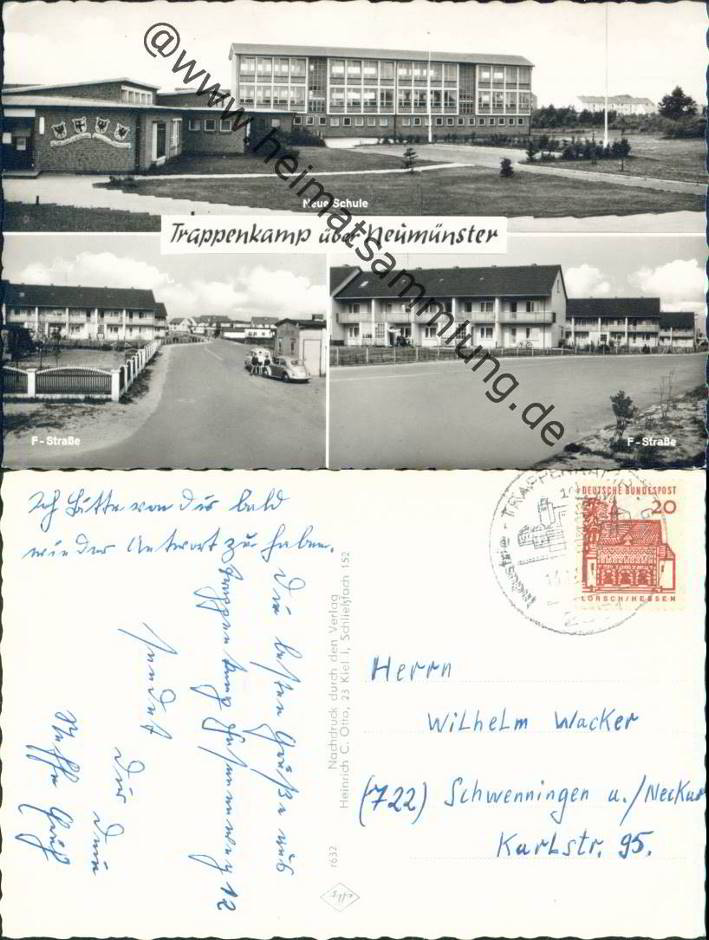 @www.heimatsammlung.de
Neue Schule
Trappenkamp über Neumünster
F-Straße
F-Straße
Ich bitte von dir bald
wieder Antwort zu haben.
Die besten Grüße aus
Trappenkamp
12
sendet
Dir Dein
Neffe
Nachdruck durch den Verlag
Heinrich C. Otto, 23 Kiel 1, Schließfach 152
1632
Industrie - TRAPPENKAMP
DEUTSCHE BUNDESPOST
20
LORSCH/HESSEN
Herrn
Wilhelm Wacker
(722) Schwenningen a./Neckar
Karlstr. 95.